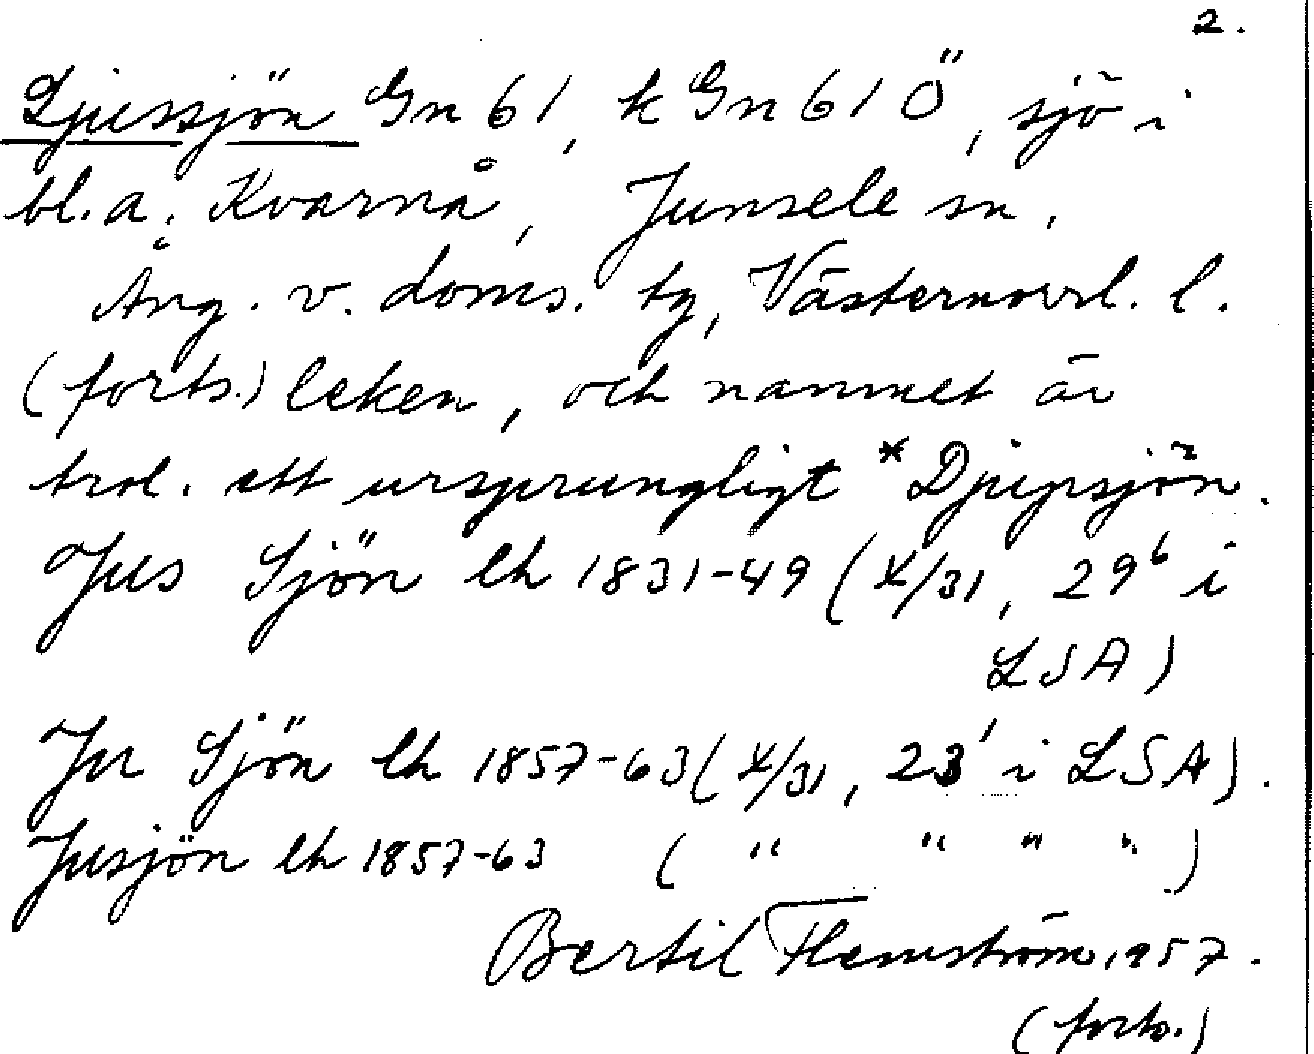 2.
Djussjön Gn 61, k Gn 61 Ö, sjö i
bl.a. Kvarnå, Junsele sn,
Ång. v. doms. tg, Västernorrl. l.
(forts.) leken, och namnet är
trol. ett ursprungligt *Djupsjön.
Jus Sjön lh 1831-49 (X/31, 29⁶ i
LSA)
Ju Sjön lh 1857-63 (X/31, 23' i LSA).
Jusjön lh 1857-63 ( " " " " )
Bertil Flemström, 1957.
(forts.)